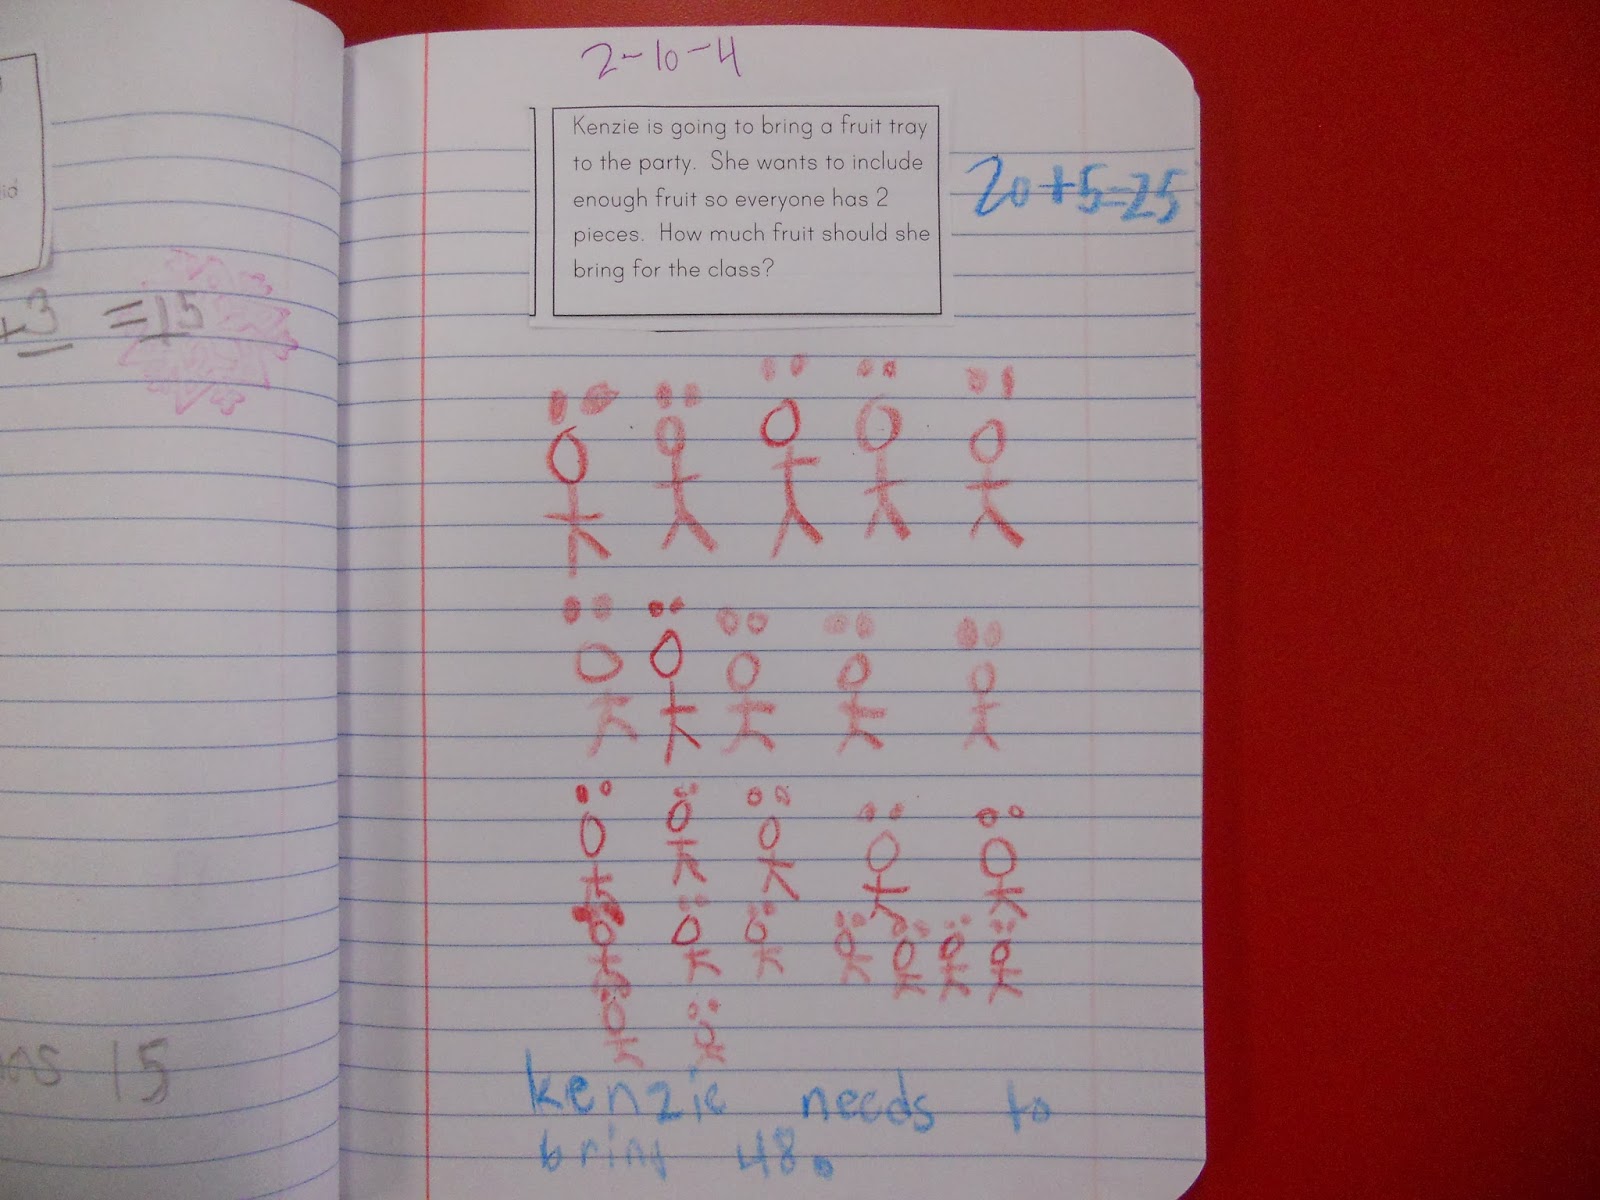 2-10-4
Kenzie is going to bring a fruit tray
to the party. She wants to include
enough fruit so everyone has 2
pieces. How much fruit should she
bring for the class?
20+5=25
+3 =15
15
kenzie needs to
bring 48.